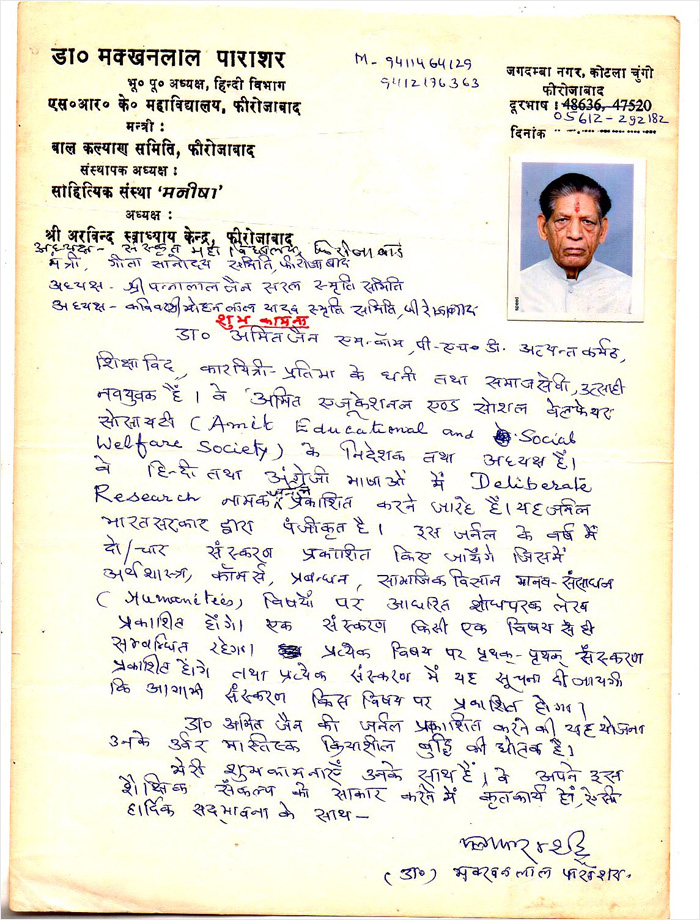 डा० मक्खनलाल पाराशर
भू० पू० अध्यक्ष, हिन्दी विभाग
एस०आर० के० महाविद्यालय, फीरोजाबाद
मन्त्री :
बाल कल्याण समिति, फीरोजाबाद
संस्थापक अध्यक्ष :
साहित्यिक संस्था 'मनीषा'
अध्यक्ष :
श्री अरविन्द स्वाध्याय केन्द्र, फीरोजाबाद
M- 9411464129
9412176363
जगदम्बा नगर, कोटला चुंगी
फीरोजाबाद
दूरभाष : 48636, 47520
05612-292182
दिनांक
अध्यक्ष- संस्कृत महाविद्यालय, फिरोजाबाद
मंत्री, गीता ज्ञानोदय समिति, फीरोजाबाद
अध्यक्ष - श्री पन्नालाल जैन सरल स्मृति समिति
अध्यक्ष- कविवर श्री मोहन लाल यादव स्मृति समिति, फीरोजाबाद
शुभ कामना
डा० अमित जैन एम-कॉम, पी-एच० डी. अत्यन्त कर्मठ,
शिक्षाविद, कारयित्री-प्रतिभा के धनी तथा समाजसेवी, उत्साही
नवयुवक हैं। वे अमित एजूकेशनल एण्ड सोशल वेलफेयर
सोसायटी (Amit Educational and Social
Welfare Society) के निदेशक तथा अध्यक्ष हैं।
वे हिन्दी तथा अंग्रेजी भाषाओं में Deliberate
Research नामक जर्नल प्रकाशित करने जारहे हैं। यह जर्नल
भारत सरकार द्वारा पंजीकृत है। इस जर्नल के वर्ष में
दो/चार संस्करण प्रकाशित किए जायेंगे जिसमें
अर्थशास्त्र, कॉमर्स, प्रबन्धन, सामाजिक विज्ञान मानव-संसाधन
(Humanities) विषयों पर आधारित शोधपरक लेख
प्रकाशित होंगे। एक संस्करण किसी एक विषय से ही
सम्बन्धित रहेगा। प्रत्येक विषय पर पृथक-पृथक संस्करण
प्रकाशित होंगे तथा प्रत्येक संस्करण में यह सूचना दी जायगी
कि आगामी संस्करण किस विषय पर प्रकाशित होगा।
डा० अमित जैन की जर्नल प्रकाशित करने की यह योजना
उनके उर्वर मस्तिष्क क्रियाशील बुद्धि की द्योतक है।
मेरी शुभकामनाएँ उनके साथ हैं। वे अपने इस
शैक्षिक संकल्प को साकार करने में कृतकार्य हों, ऐसी
हार्दिक सद्भावना के साथ-
(डा०) मक्खनलाल पाराशर